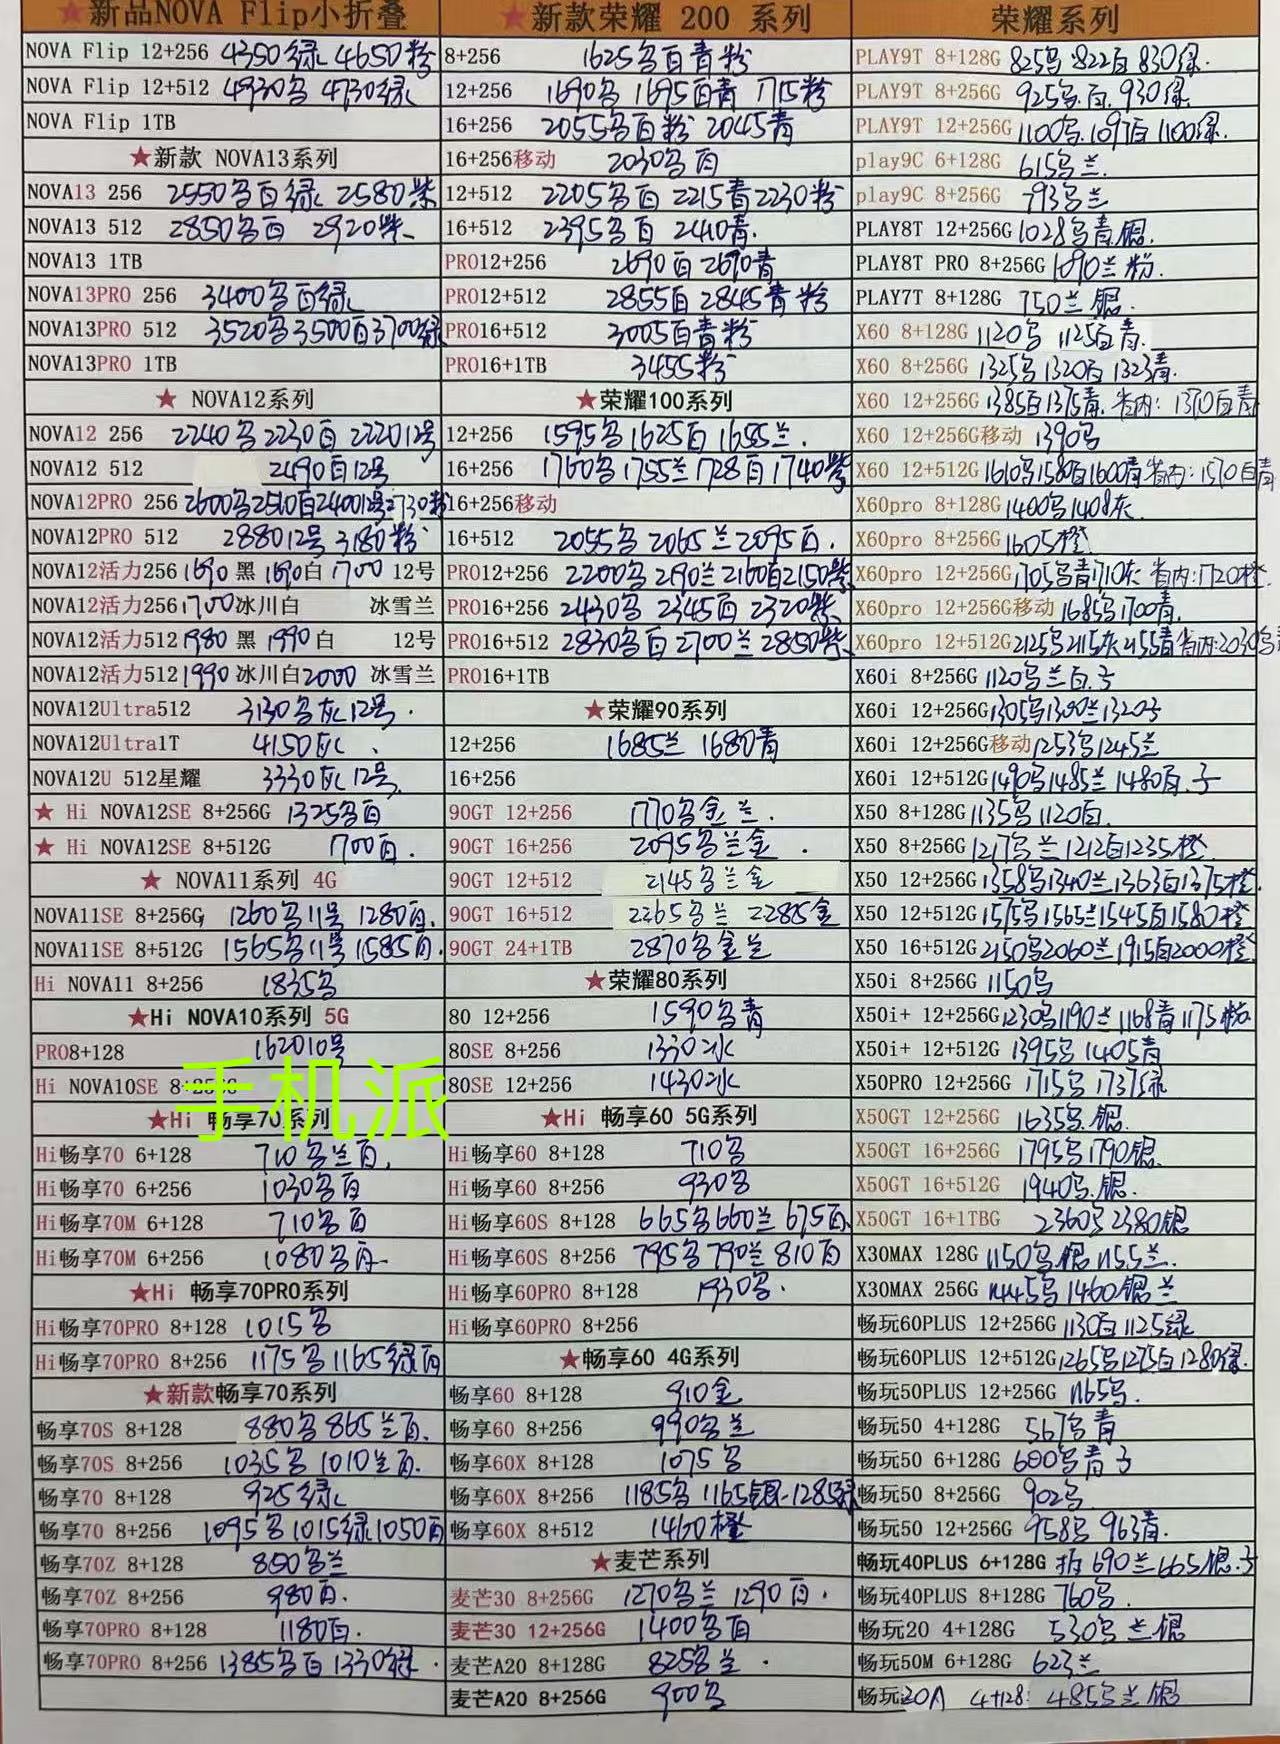 ★新品NOVA Flip小折叠
NOVA Flip 12+256 4350绿 4650粉
NOVA Flip 12+512 4930乌 4730绿
NOVA Flip 1TB
★新款 NOVA13系列
NOVA13 256 2550乌白绿 2580紫
NOVA13 512 2850乌白 2920紫
NOVA13 1TB
NOVA13PRO 256 3400乌白绿
NOVA13PRO 512 3520乌3500白3700绿
NOVA13PRO 1TB
★ NOVA12系列
NOVA12 256 2240乌2230白222012号
NOVA12 512 2490白12号
NOVA12PRO 256 2600乌2510白240012号2730粉
NOVA12PRO 512 288012号 3180粉
NOVA12活力256 1690 黑 1690白 1700 12号
NOVA12活力256 1700冰川白 冰雪兰
NOVA12活力512 1980 黑 1990 白 12号
NOVA12活力512 1990 冰川白2000 冰雪兰
NOVA12Ultra512 3130乌灰12号.
NOVA12Ultra1T 4150灰
NOVA12U 512星耀 3330灰12号
★ Hi NOVA12SE 8+256G 1325乌白
★ Hi NOVA12SE 8+512G 1700白.
★ NOVA11系列 4G
NOVA11SE 8+256G 1260乌11号 1280白.
NOVA11SE 8+512G 1565乌11号 1585白.
Hi NOVA11 8+256 1835乌
★Hi NOVA10系列 5G
PRO8+128 162010号
Hi NOVA10SE 8+256G
手机派
★Hi 畅享70系列
Hi畅享70 6+128 710乌兰白.
Hi畅享70 6+256 1030乌白
Hi畅享70M 6+128 710乌白
Hi畅享70M 6+256 1080乌白
★Hi 畅享70PRO系列
Hi畅享70PRO 8+128 1015乌
Hi畅享70PRO 8+256 1175乌1165绿白
★新款畅享70系列
畅享70S 8+128 880乌865兰白.
畅享70S 8+256 1035乌1010兰白.
畅享70 8+128 925绿
畅享70 8+256 1095乌1015绿1050白
畅享70Z 8+128 850乌兰
畅享70Z 8+256 980白.
畅享70PRO 8+128 1180白.
畅享70PRO 8+256 1385乌白1330绿.
★新款荣耀 200 系列
8+256 1625乌白青粉
12+256 1690乌 1695白青 1715粉
16+256 2055乌白粉 2045青
16+256移动 2030乌白
12+512 2205乌白 2215青2230粉
16+512 2395乌白 2410青.
PRO12+256 2690白2690青
PRO12+512 2855白2845青粉
PRO16+512 3005白青粉
PRO16+1TB 3455粉
★荣耀100系列
12+256 1595乌1625白1655兰.
16+256 1760乌1755兰1728白1740紫
16+256移动
16+512 2055乌2065兰2095白.
PRO12+256 2200乌2190兰2160白2150紫
PRO16+256 2430乌2345白2320紫
PRO16+512 2830乌白2700兰2850紫
PRO16+1TB
★荣耀90系列
12+256 1685兰 1680青
16+256
90GT 12+256 1770乌金兰.
90GT 16+256 2095乌兰金.
90GT 12+512 2145乌兰金
90GT 16+512 2265乌兰 2285金
90GT 24+1TB 2870乌金兰
★荣耀80系列
80 12+256 1590乌青
80SE 8+256 1330冰
80SE 12+256 1430冰
★Hi 畅享60 5G系列
Hi畅享60 8+128 710乌
Hi畅享60 8+256 930乌
Hi畅享60S 8+128 665乌660兰675白
Hi畅享60S 8+256 795乌790兰810白
Hi畅享60PRO 8+128 1930乌.
Hi畅享60PRO 8+256
★畅享60 4G系列
畅享60 8+128 910金
畅享60 8+256 990乌兰
畅享60X 8+128 1075乌
畅享60X 8+256 1185乌1165银1285绿
畅享60X 8+512 1460橙
★麦芒系列
麦芒30 8+256G 1270乌兰1290白.
麦芒30 12+256G 1400乌白
麦芒A20 8+128G 825乌兰.
麦芒A20 8+256G 900乌
荣耀系列
PLAY9T 8+128G 825乌822白830绿.
PLAY9T 8+256G 925乌.白.930绿
PLAY9T 12+256G 1100乌.1097白1100绿.
play9C 6+128G 615乌兰
play9C 8+256G 793乌兰
PLAY8T 12+256G 1028乌青银.
PLAY8T PRO 8+256G 1090兰粉.
PLAY7T 8+128G 750兰银
X60 8+128G 1120乌 1125白青.
X60 8+256G 1325乌1320白1323青.
X60 12+256G 1385白1375青.省内:1370白青
X60 12+256G移动 1390乌
X60 12+512G 1610乌1580白1600青省内:1570白青
X60pro 8+128G 1400乌1408灰
X60pro 8+256G 1605橙
X60pro 12+256G 1705乌青1710灰 省内:1720橙
X60pro 12+256G移动 1685乌1700青.
X60pro 12+512G 2125乌2115灰2155青省内:2030乌
X60i 8+256G 1120乌兰白子
X60i 12+256G 1305乌1300兰1320子
X60i 12+256G移动1253乌1245兰
X60i 12+512G 1490乌1485兰1480白.子
X50 8+128G 1135乌1120白.
X50 8+256G 1217乌兰1212白1235橙
X50 12+256G 1358乌1340兰1363白1375橙
X50 12+512G 1575乌1565兰1545白1580橙
X50 16+512G 2150乌2060兰1915白2000橙
X50i 8+256G 1150乌
X50i+ 12+256G 1230乌1190兰1168青1175粉
X50i+ 12+512G 1395乌1405青
X50PRO 12+256G 1715乌1737绿
X50GT 12+256G 1635乌银
X50GT 16+256G 1795乌1790银
X50GT 16+512G 1940乌.银.
X50GT 16+1TBG 2360乌2380银
X30MAX 128G 1150乌银1155兰.
X30MAX 256G 1445乌1460银兰
畅玩60PLUS 12+256G 1130白1125绿
畅玩60PLUS 12+512G 1265乌1275白1280绿.
畅玩50PLUS 12+256G 1165乌.
畅玩50 4+128G 567乌青
畅玩50 6+128G 600乌青子
畅玩50 8+256G 902乌
畅玩50 12+256G 958乌963青.
畅玩40PLUS 6+128G 690兰665银.子
畅玩40PLUS 8+128G 760乌
畅玩20 4+128G 530乌兰银
畅玩50M 6+128G 623兰
畅玩20A 4+128: 485乌兰银